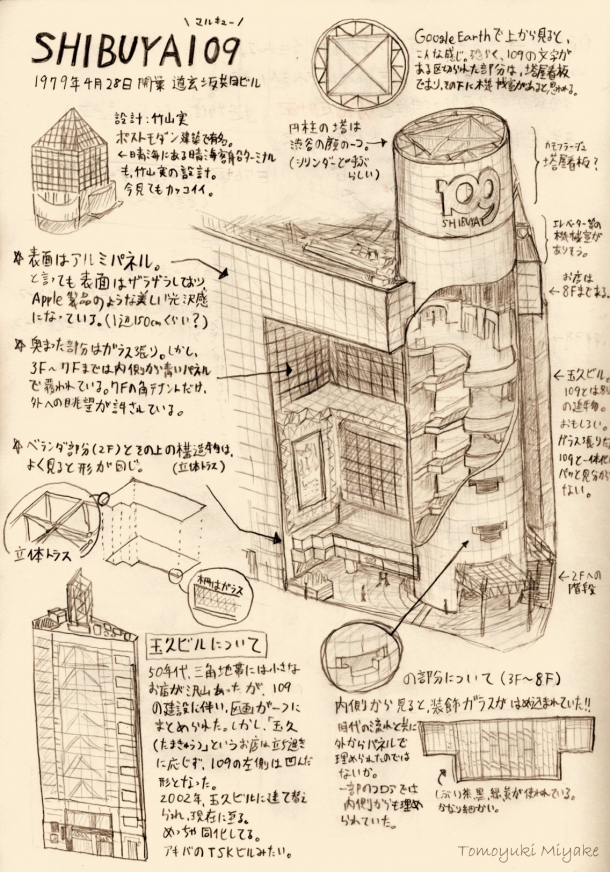 マルキュー
SHIBUYA109
1979年4月28日開業 道玄坂共同ビル
Google Earthで上から見ると、
こんな感じ。恐らく、109の文字が
ある区切られた部分は、塔屋看板
であり、その下に機械室があると思われる。
設計:竹山実
ポストモダン建築で有名。
←晴海にある晴海客船ターミナル
も、竹山実の設計。
今見てもカッコイイ。
円柱の塔は
渋谷の顔の一つ。
(シリンダーと呼ぶ
らしい)
カモフラージュ
塔屋看板?
109
SHIBUYA
エレベーター等の
機械室が
ありそう。
お店は
←8Fまである。
表面はアルミパネル。
と言っても表面はザラザラしており、
Apple製品のような美しい光沢感
になっている。(1辺150cmくらい?)
奥まった部分はガラス張り。しかし、
3F~7Fまでは内側から青いパネル
で覆われている。7Fの角テナントだけ、
外への眺望が許されている。
←玉久ビル。
109とは別
の建物。
おもしろい。
ガラス張りで
109と一体化
パッと見分から
ない。
ベランダ部分(2F)とその上の構造物は、
よく見ると形が同じ。 (立体トラス)
立体トラス
柵はガラス
←2Fへの
階段
玉久ビルについて
50年代、三角地帯には小さな
お店が沢山あったが、109
の建設に伴い、区画が一つに
まとめられた。しかし、「玉久
(たまきゅう)」というお店は立ち退き
に応じず、109の左側は凹んだ
形となった。
2002年、玉久ビルに建て替え
られ、現在に至る。
めっちゃ同化してる。
アキバのTSKビルみたい。
の部分について (3F~8F)
内側から見ると、装飾ガラスがはめ込まれていた!!
時代の流れと共に
外からパネルで
埋められたのでは
ないか。
一部のフロアでは
内側からも埋め
られていた。
しぶい茶、黒、緑、黄が使われている。
かなり細かい。
Tomoyuki Miyake